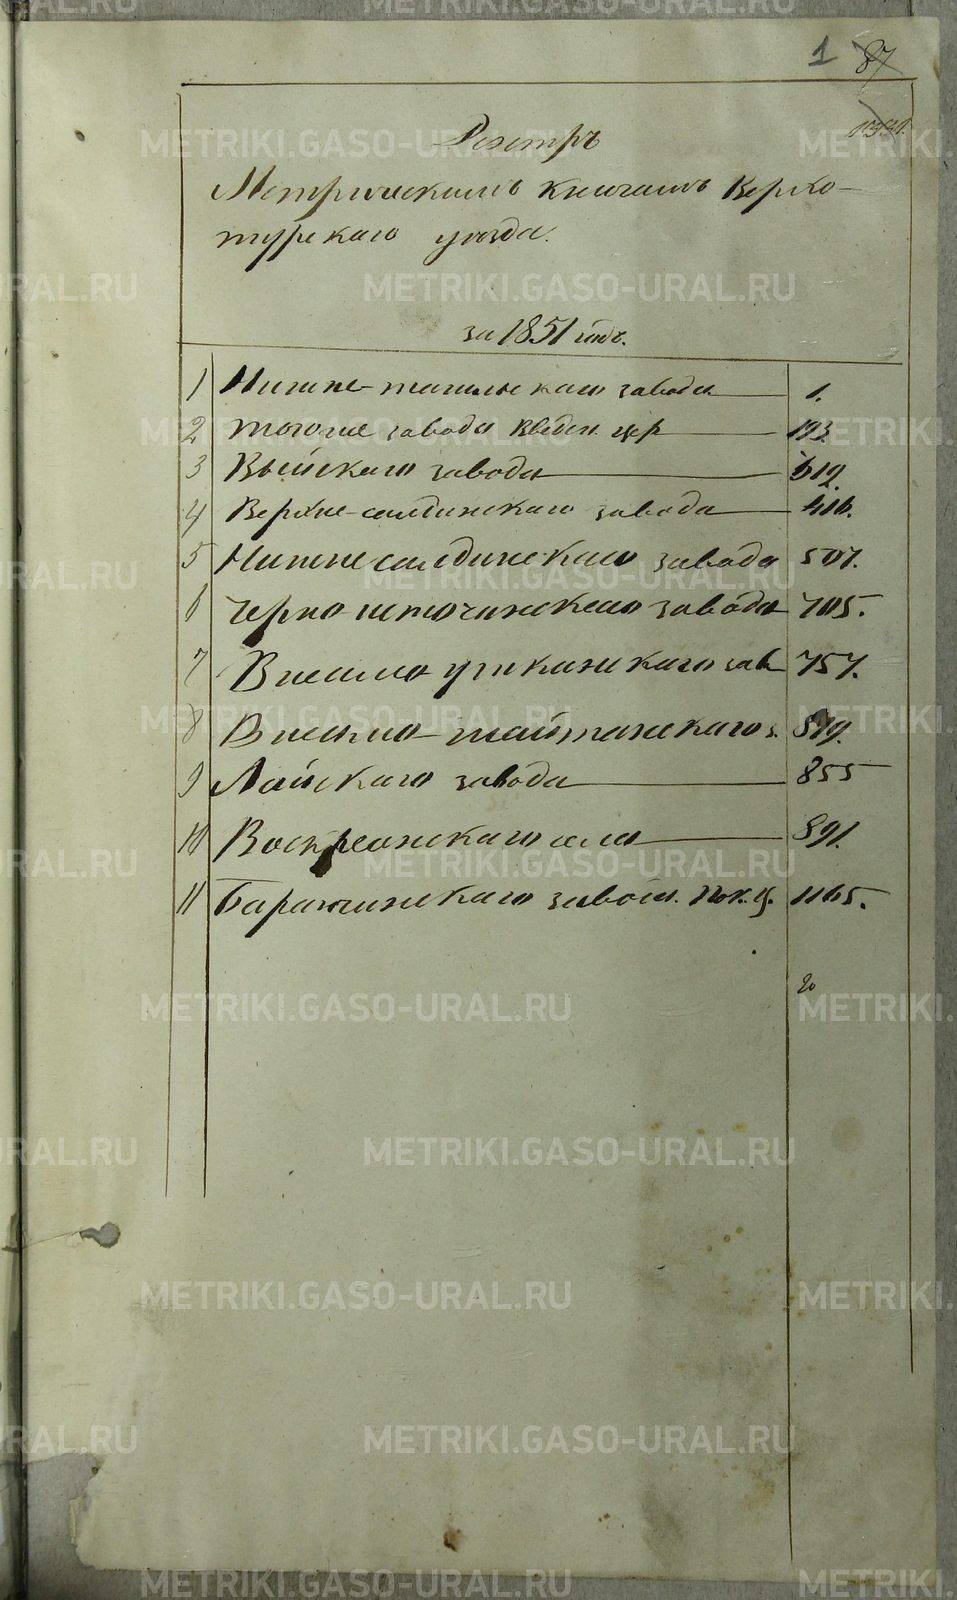 1 87
1331.
Реестръ
Метрическимъ книгамъ Верхо-
турскаго уѣзда.
за 1851 годъ.
1 Нижне-тагильскаго завода 1.
2 тогоже завода Введен. цер 193.
3 Выйскаго завода 319.
4 Верхне-салдинскаго завода 416.
5 Нижнесалдинскаго завода 507.
6 Черноисточинскаго завода 705.
7 Висимо уткинскаго зав 757.
8 Висимо-шайтанскаго з. 819.
9 Лайскаго завода 855
10 Воскресенскаго села 891.
11 Баранчинскаго завода. Пок. ц. 1165.
METRIKI.GASO-URAL.RU